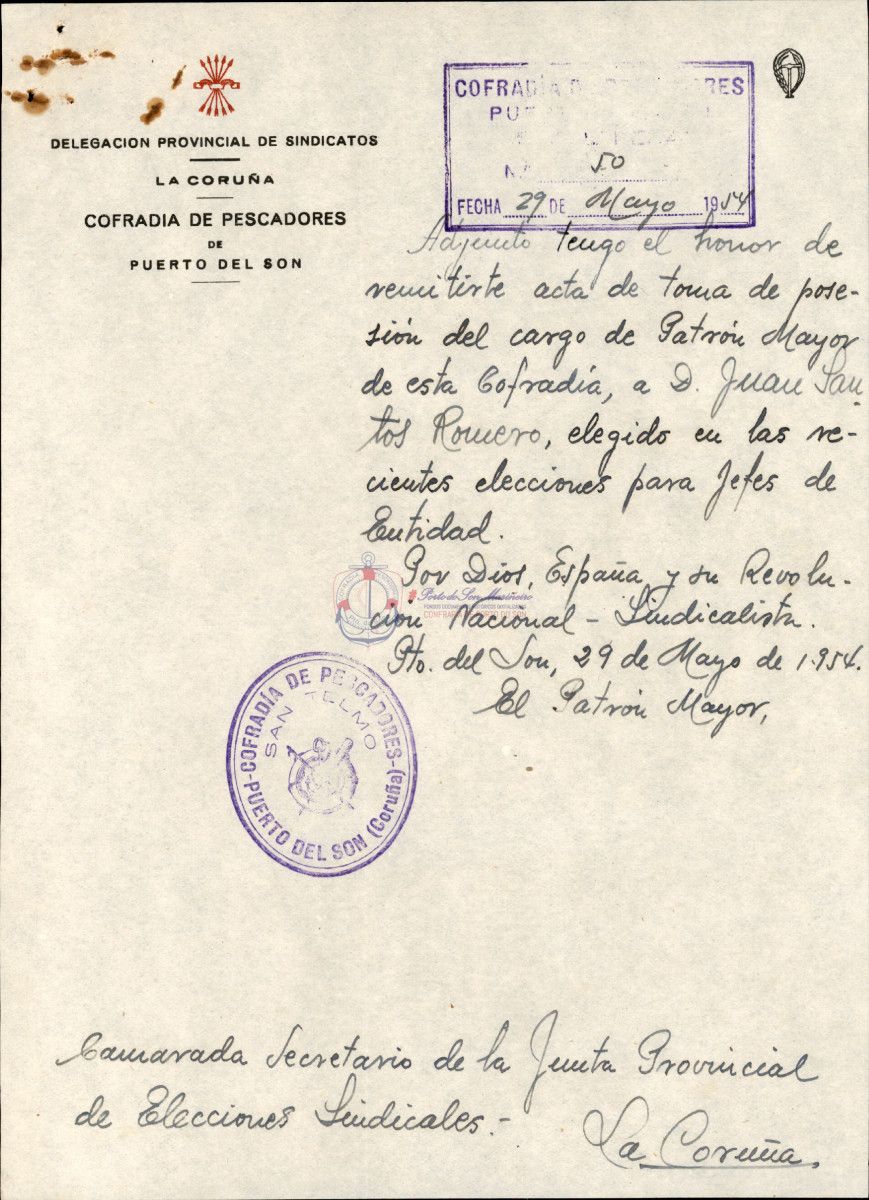 DELEGACION PROVINCIAL DE SINDICATOS
LA CORUÑA
COFRADIA DE PESCADORES
DE
PUERTO DEL SON
COFRADÍA DE PESCADORES
Nº 50
FECHA 29 DE Mayo 1954
Adjunto tengo el honor de
remitirte acta de toma de pose-
sión del cargo de Patrón Mayor
de esta Cofradía, a D. Juan San-
tos Romero, elegido en las re-
cientes elecciones para Jefes de
Entidad.
Por Dios, España y su Revolu-
ción Nacional-Sindicalista.
Pto. del Son, 29 de Mayo de 1.954.
El Patrón Mayor,
Porto do Son Mariñeiro
COFRADÍA DE PESCADORES
SAN TELMO
PUERTO DEL SON (Coruña)
Camarada Secretario de la Junta Provincial
de Elecciones Sindicales.-
La Coruña.